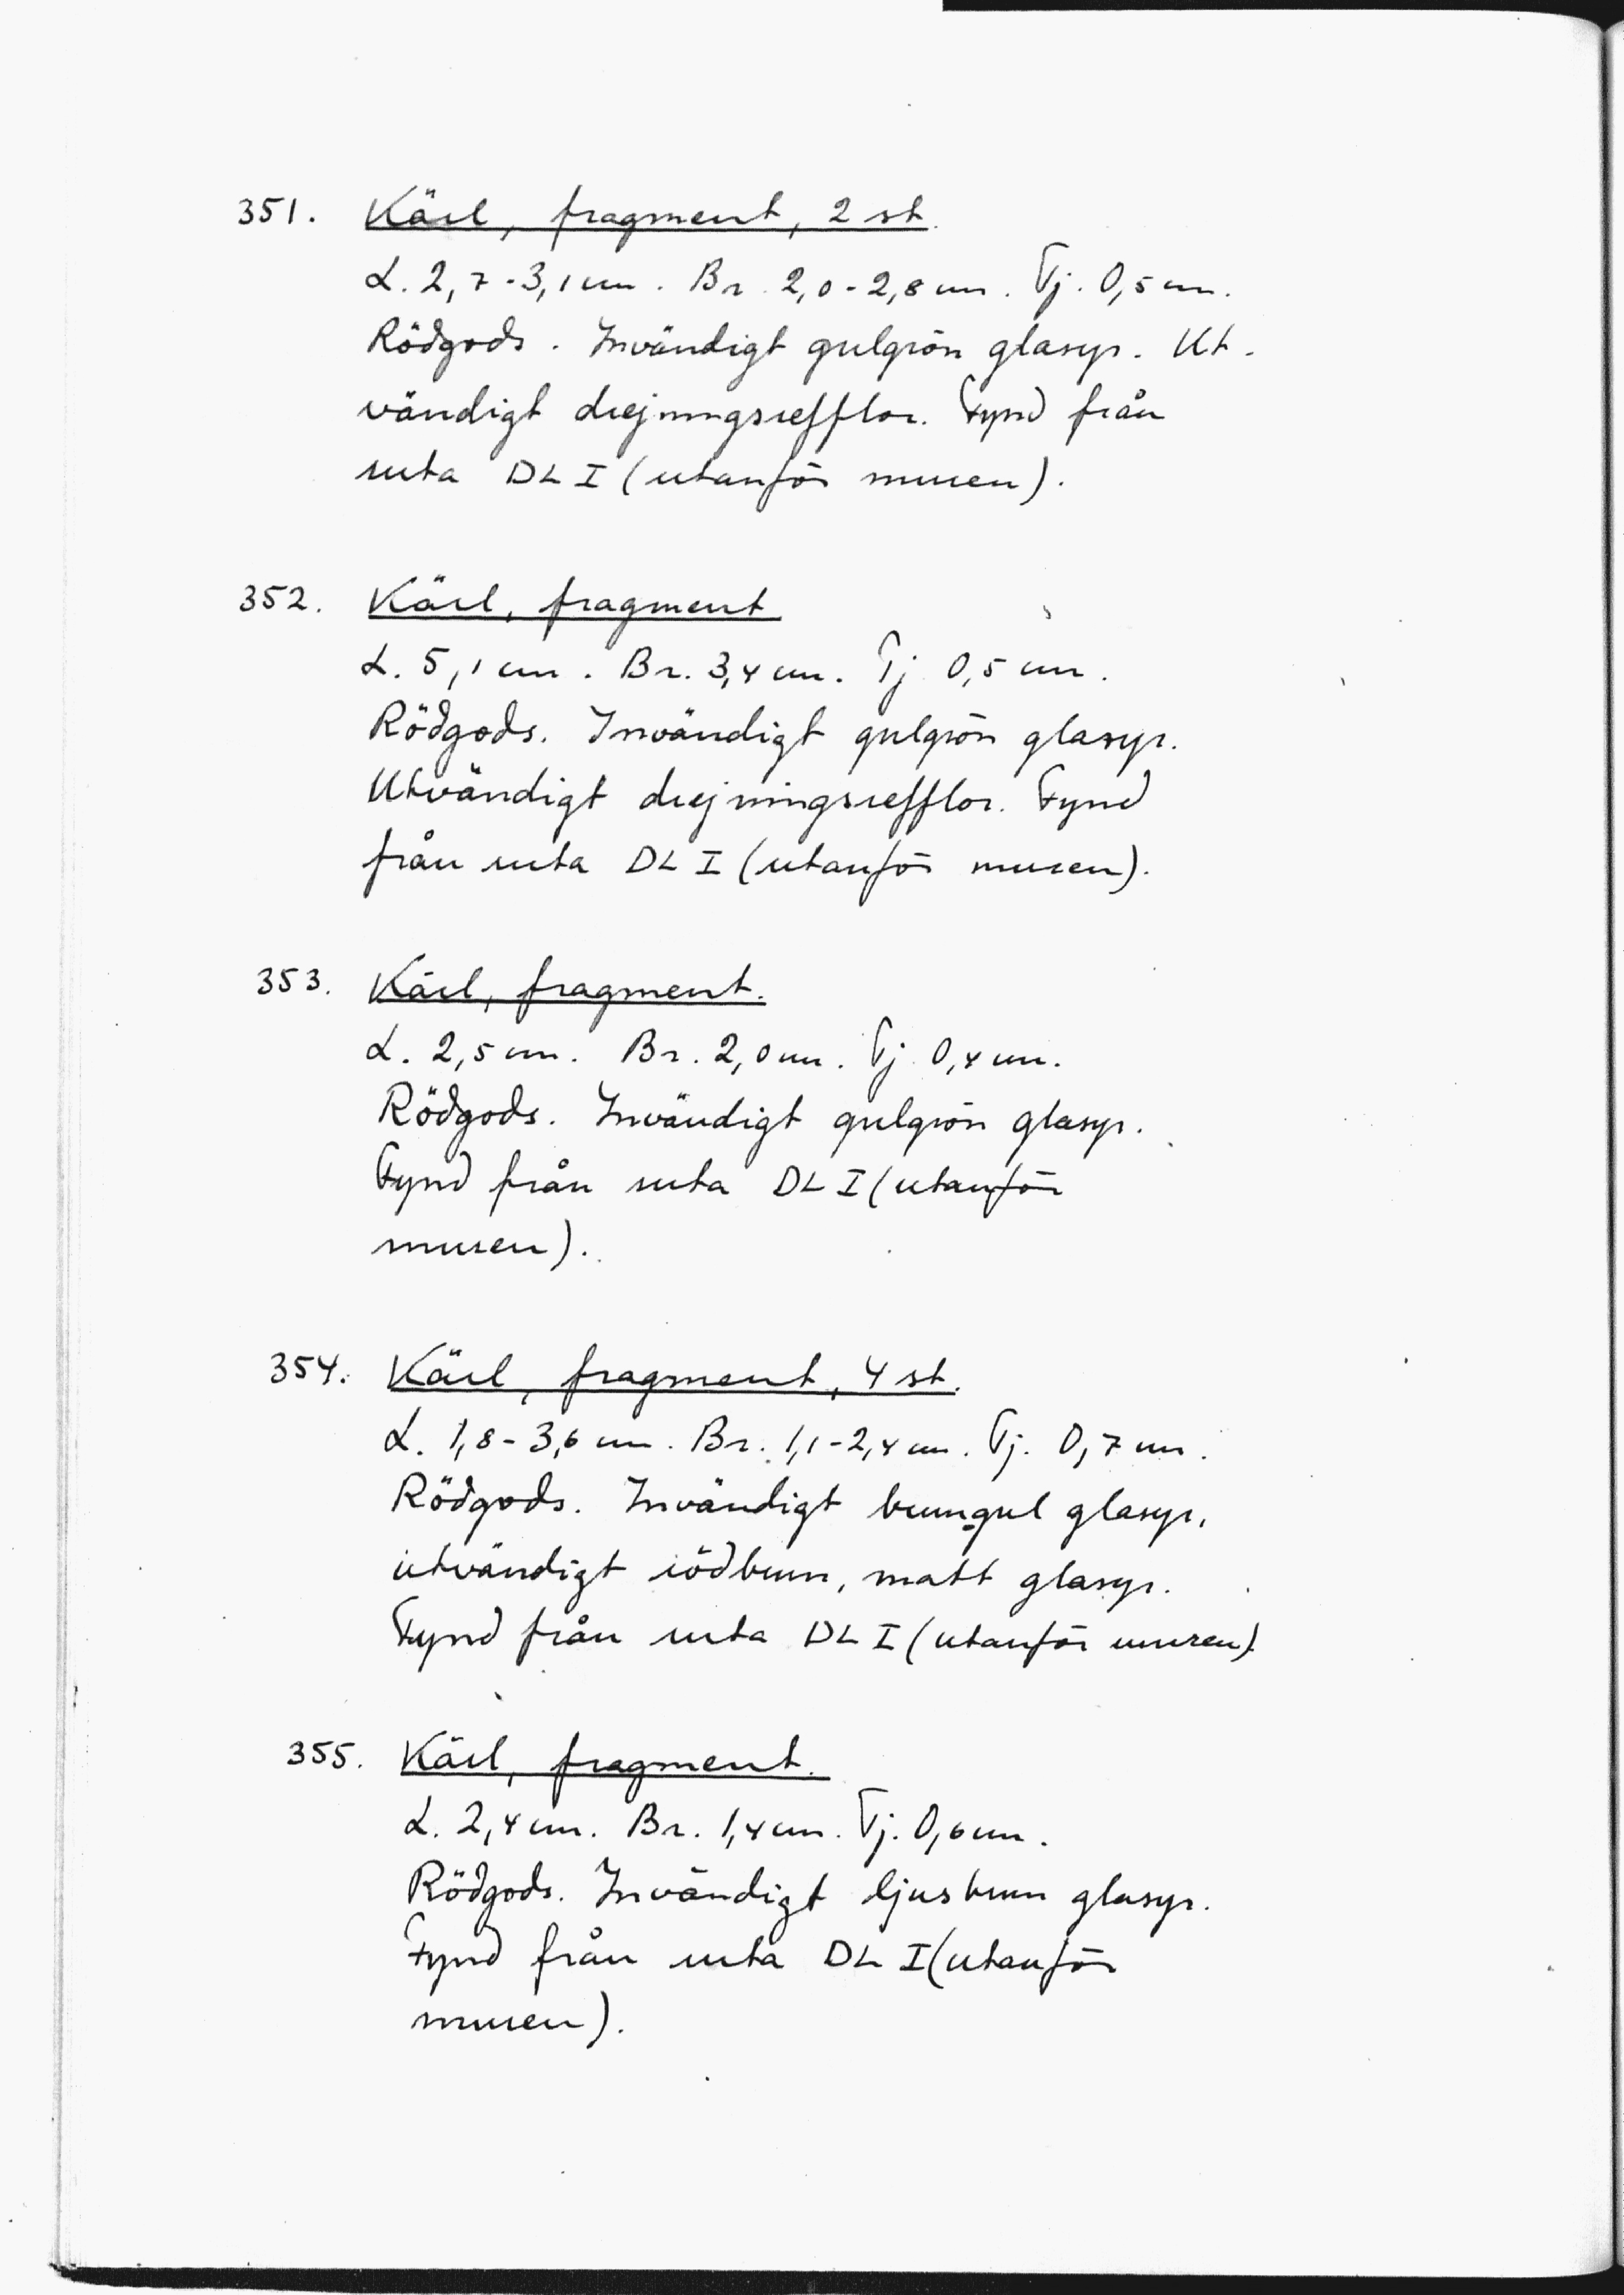 351. Kärl, fragment, 2 st.
L. 2,7-3,1 cm. Br. 2,0-2,8 cm. Tj. 0,5 cm.
Rödgods. Invändigt gulgrön glasyr. Ut-
vändigt drejningsrefflor. Fynd från
ruta DL I (utanför muren).
352. Kärl, fragment
L. 5,1 cm. Br. 3,4 cm. Tj. 0,5 cm.
Rödgods. Invändigt gulgrön glasyr.
Utvändigt drejningsrefflor. Fynd
från ruta DL I (utanför muren).
353. Kärl, fragment.
L. 2,5 cm. Br. 2,0 cm. Tj. 0,4 cm.
Rödgods. Invändigt gulgrön glasyr.
Fynd från ruta DL I (utanför
muren).
354. Kärl, fragment, 4 st.
L. 1,8-3,6 cm. Br. 1,1-2,4 cm. Tj. 0,7 cm.
Rödgods. Invändigt brungul glasyr,
utvändigt rödbrun, matt glasyr.
Fynd från ruta DL I (utanför muren).
355. Kärl, fragment.
L. 2,4 cm. Br. 1,4 cm. Tj. 0,6 cm.
Rödgods. Invändigt ljusbrun glasyr.
Fynd från ruta DL I (utanför
muren).